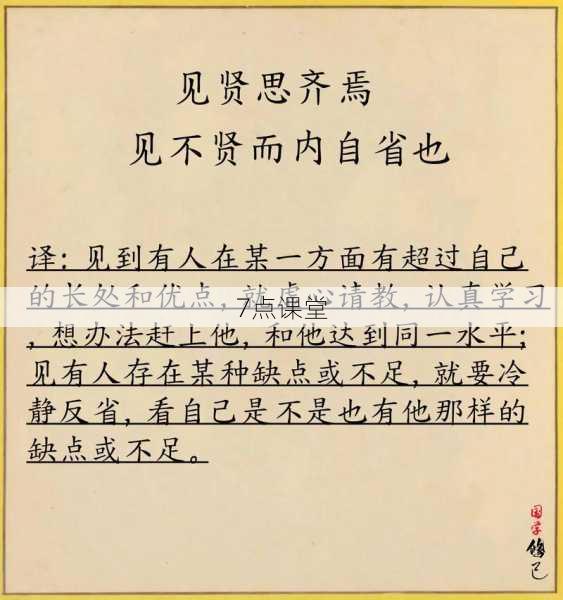 见贤思齐焉
见不贤而内自省也
译：见到有人在某一方面有超过自己
的长处和优点，就虚心请教，认真学习
7点课堂
，想办法赶上他，和他达到同一水平；
见有人存在某种缺点或不足，就要冷
静反省，看自己是不是也有他那样的
缺点或不足。
国学
修己